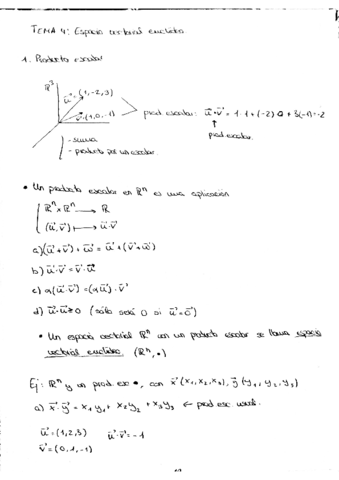 TEMA 4: Espacio vectorial euclídeo
1. Producto escalar
ℝ³
u⃗ = (1,-2,3)
v⃗ = (1,0,-1)
prod. escalar: u⃗·v⃗ = 1·1 + (-2)·0 + 3(-1) = -2
↑
prod. escalar
- suma
- producto por un escalar
• Un producto escalar en ℝⁿ es una aplicación
ℝⁿ × ℝⁿ → ℝ
(u⃗, v⃗) ↦ u⃗·v⃗
a) (u⃗+v⃗) + w⃗ = u⃗ + (v⃗+w⃗)
b) u⃗·v⃗ = v⃗·u⃗
c) α(u⃗·v⃗) = (αu⃗)·v⃗
d) u⃗·u⃗ ≥ 0 (sólo será 0 si u⃗ = 0⃗)
• Un espacio vectorial ℝⁿ con un producto escalar se llama espacio
vectorial euclídeo. (ℝⁿ, •)
Ej: ℝⁿ y un prod. esc •, con x⃗ (x₁, x₂, x₃), y⃗ (y₁, y₂, y₃)
a) x⃗·y⃗ = x₁y₁ + x₂y₂ + x₃y₃ ← prod. esc. usual.
u⃗ = (1,2,3) u⃗·v⃗ = -1
v⃗ = (0,1,-1)